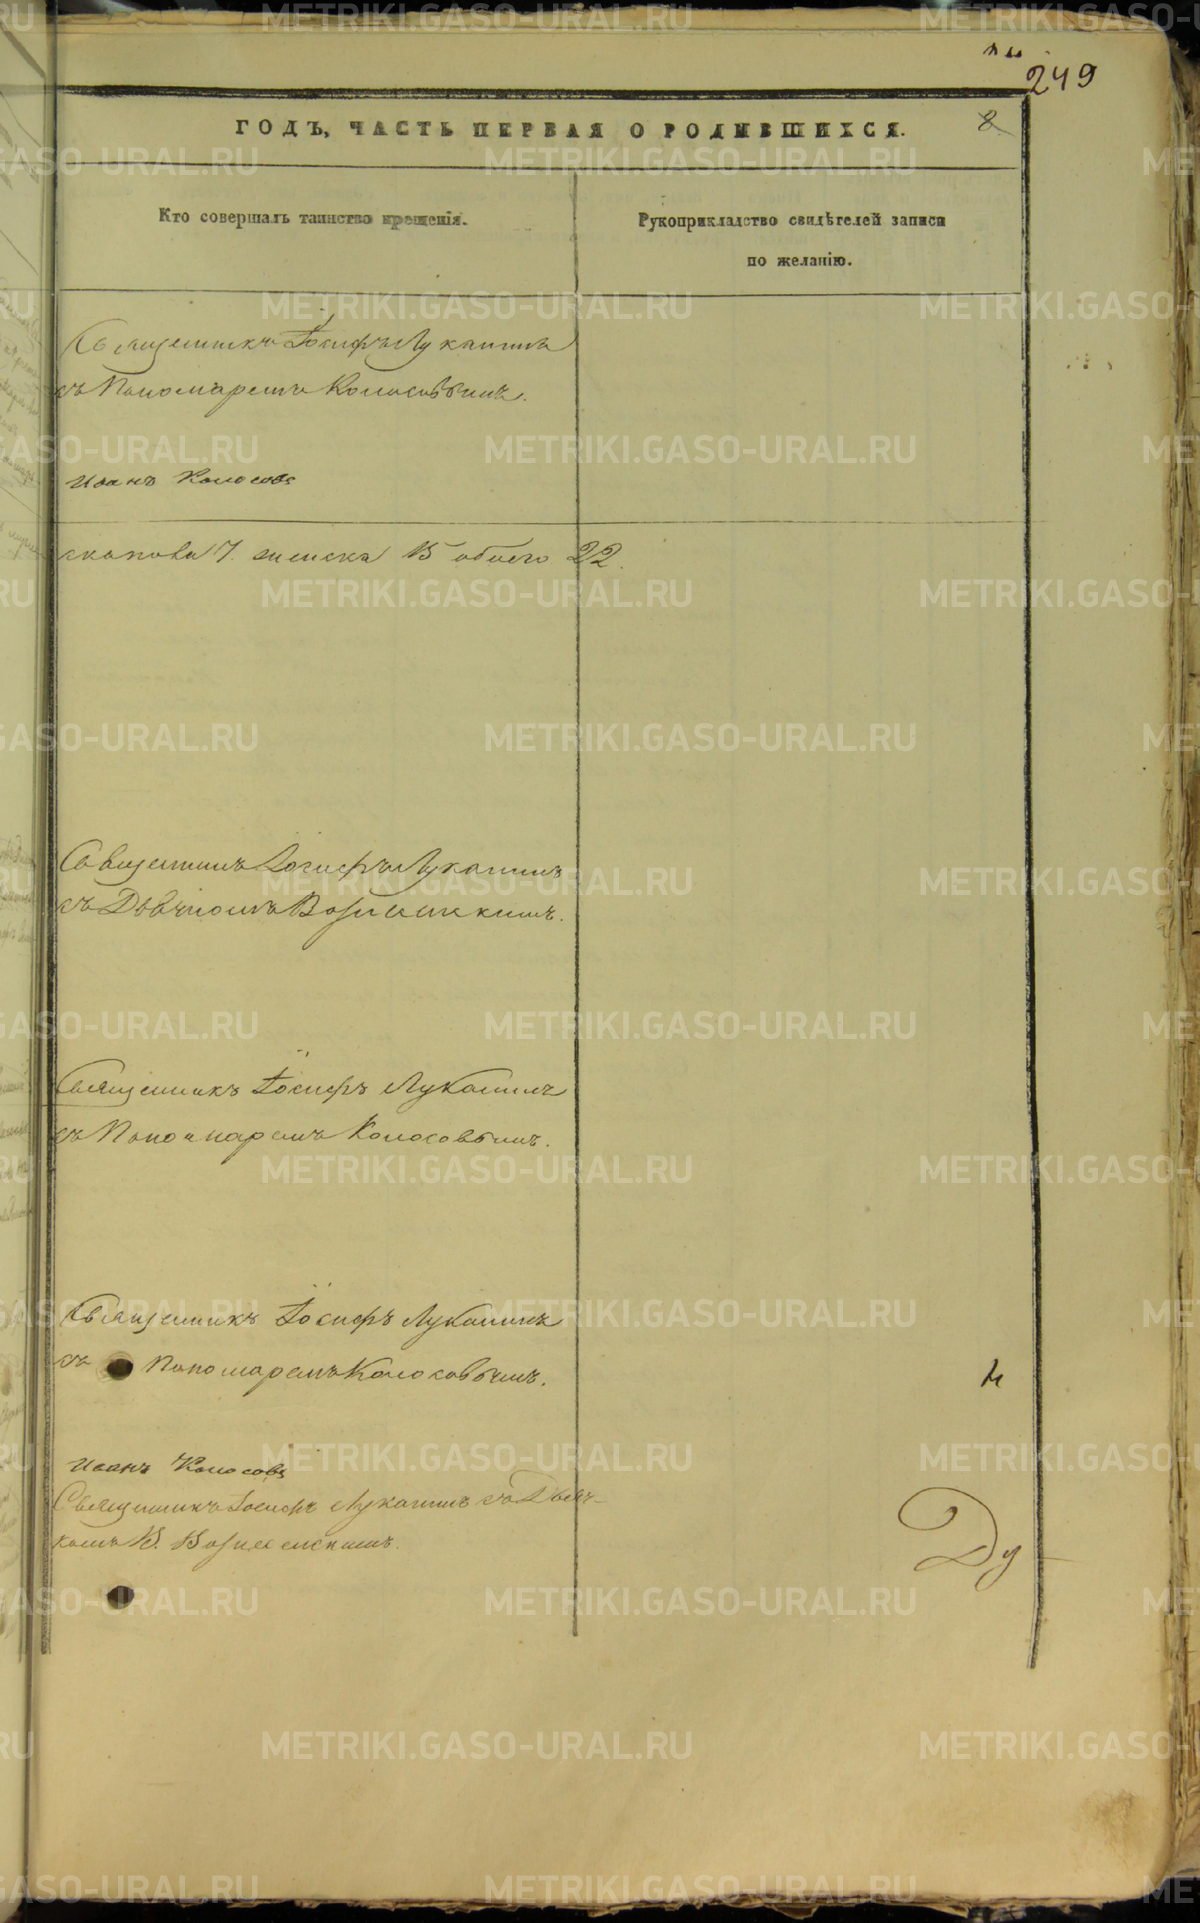 249
ГОДЪ, ЧАСТЬ ПЕРВАЯ О РОДИВШИХСЯ.
8
Кто совершалъ таинство крещенія.
Рукоприкладство свидѣтелей записи
по желанію.
Священникъ Іосифъ Лукапинъ
съ Пономаремъ Колосовымъ.
Иванъ Колосовъ
7. женска 15 обоего 22.
Священникъ Іосифъ Лукапинъ
съ Дьячкомъ Вознесенскимъ.
Священникъ Іосифъ Лукапинъ
съ Пономаремъ Колосовымъ.
Священникъ Іосифъ Лукапинъ
съ Пономаремъ Колосовымъ.
Иванъ Колосовъ
Священникъ Іосифъ Лукапинъ съ Дьяч-
комъ В. Вознесенскимъ.
Ду
METRIKI.GASO-URAL.RU